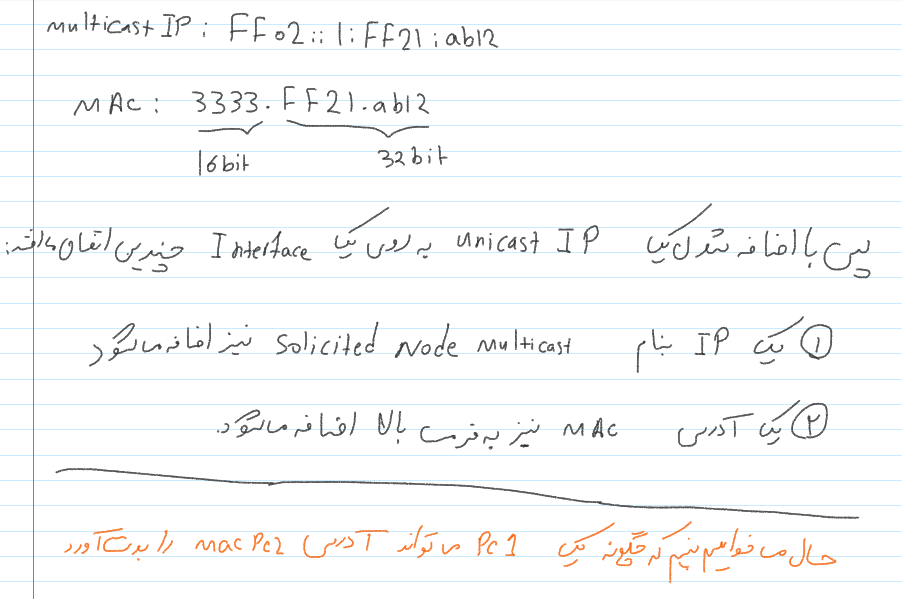 multicast IP : FF02::1:FF21:ab12
MAC : 3333.FF21.ab12
16bit 32bit
پس با اضافه شدن یک unicast IP به روی یک Interface چندین اتفاق می‌افتد:
① یک IP بنام Solicited Node Multicast نیز اضافه می‌شود
② یک آدرس MAC نیز به فرمت بالا اضافه می‌شود.
حال می‌خواهیم ببینیم که چگونه یک PC1 می‌تواند آدرس mac PC2 را بدست آورد